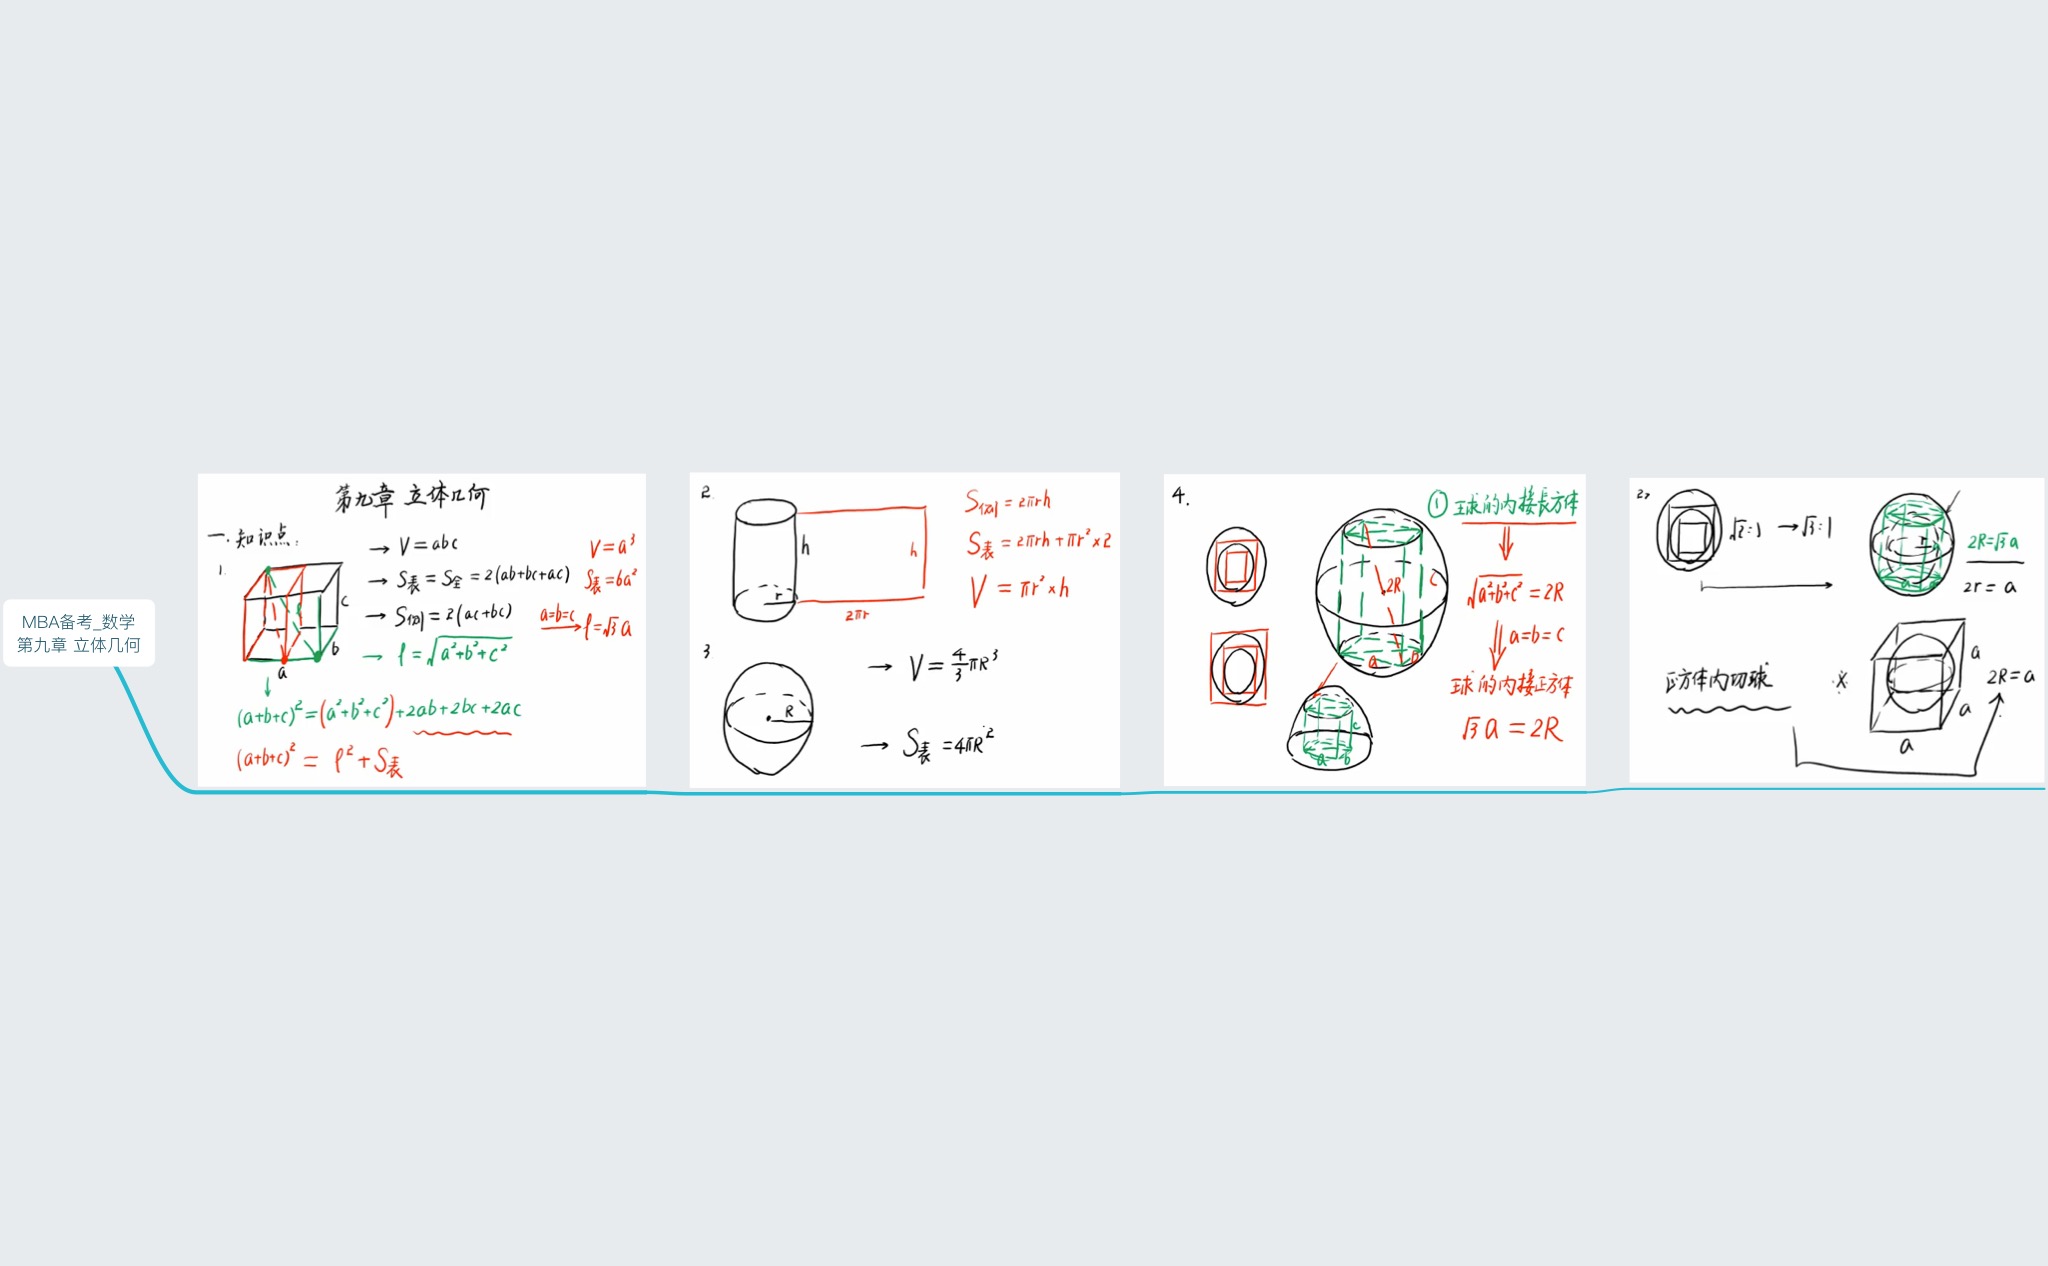 MBA备考_数学
第九章 立体几何
第九章 立体几何
一. 知识点:
1.
a
b
c
l
→ V=abc
→ S表=S全=2(ab+bc+ac)
→ S侧=2(ac+bc)
→ l=√(a²+b²+c²)
V=a³
S表=6a²
a=b=c → l=√3a
(a+b+c)²=(a²+b²+c²)+2ab+2bc+2ac
(a+b+c)²=l²+S表
2.
h
r
h
2πr
S侧=2πrh
S表=2πrh+πr²×2
V=πr²×h
3
R
→ V=4/3πR³
→ S表=4πR²
4.
2R
c
a
b
c
a
b
① 球的内接長方体
√(a²+b²+c²)=2R
a=b=c
球的内接正方体
√3a=2R
2>
√2:1 →√3:1
r
a
2R=√3a
2r=a
正方体内切球
a
a
a
2R=a